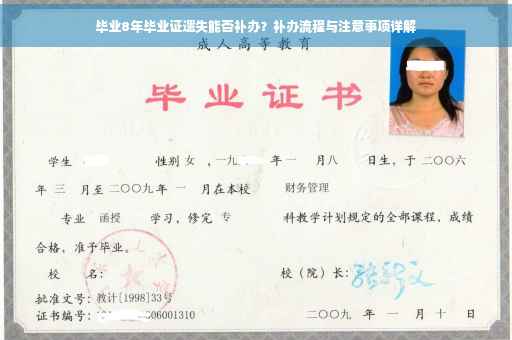 毕业8年毕业证遗失能否补办？补办流程与注意事项详解
成人高等教育
毕业证书
学生 性别 女 ，一九 年 一 月八 日生，于 二〇〇六
年 三 月至 二〇〇九 年 一 月在本校 财务管理
专业 函授 学习，修完 专 科教学计划规定的全部课程，成绩
合格，准予毕业。
校 名： 校（院）长：
批准文号：教计[1998]33号
证书编号： 06001310 二〇〇九 年 一 月 十 日